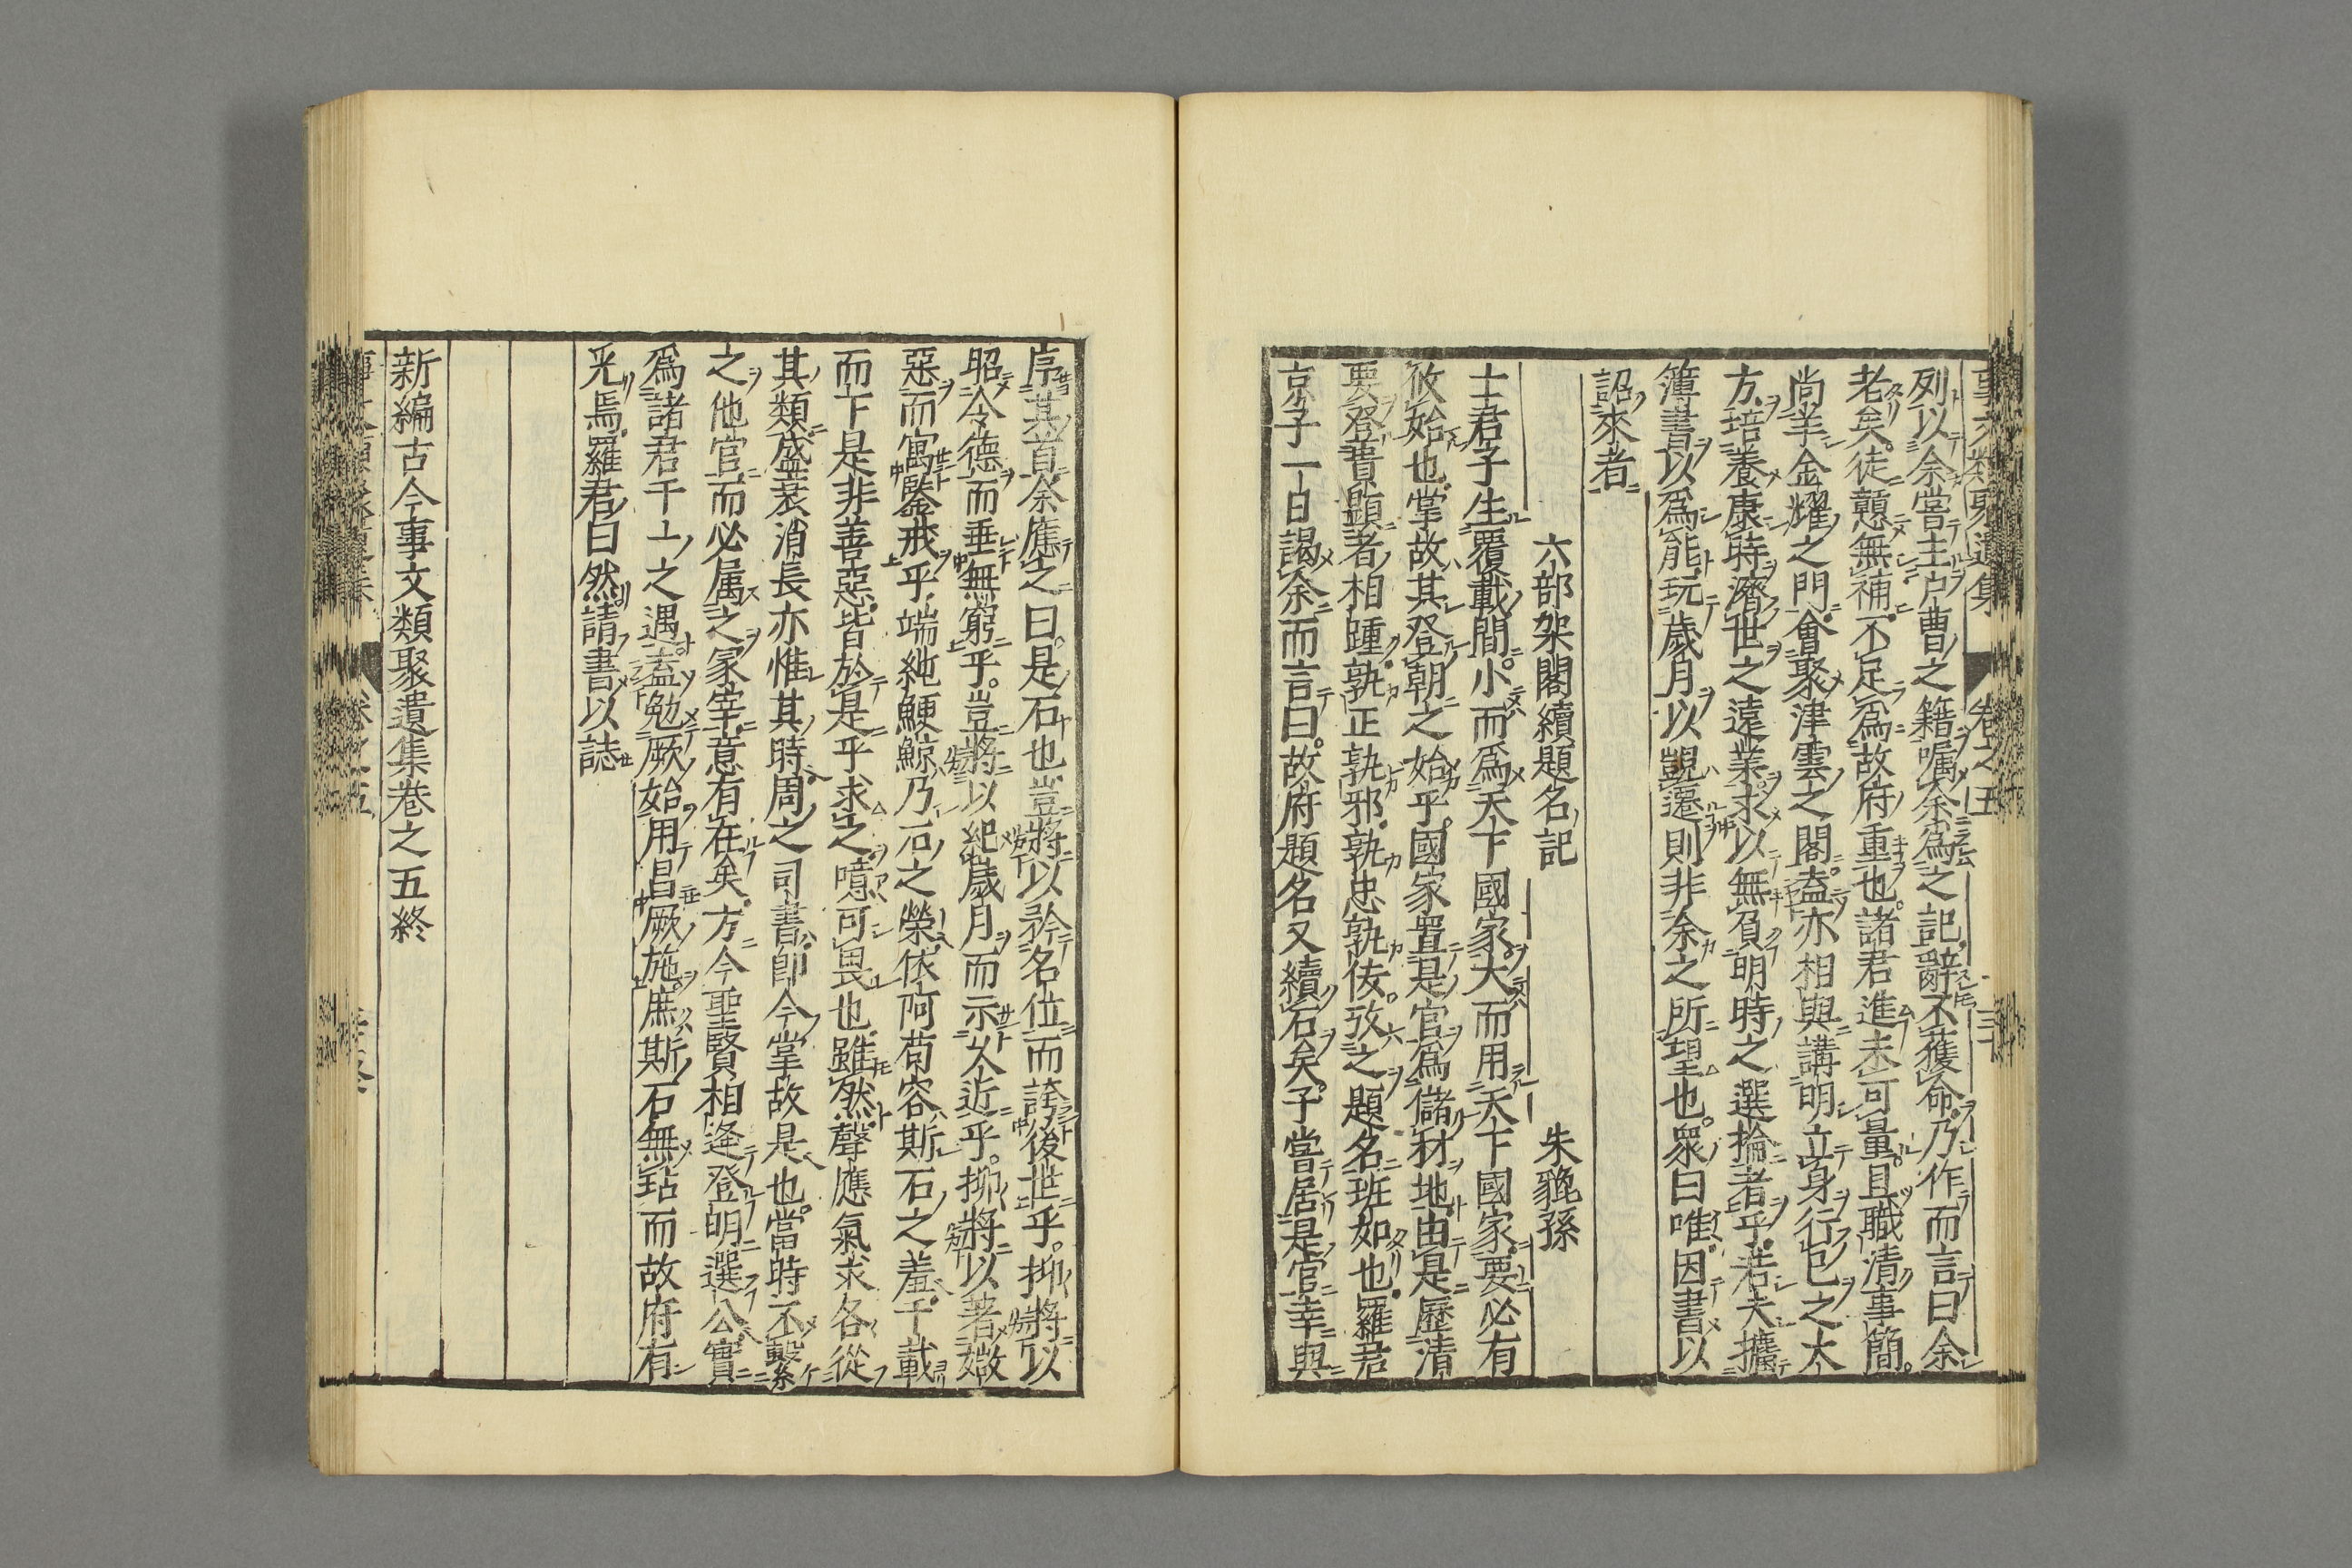 列以余嘗主戶曹之籍囑余爲之記辭不獲命乃作而言曰余
老矣徒戇無補不足爲故府重也諸君進未可量且職清事簡
尚羊金耀之門會聚津雲之閣盍亦相與講明立身行已之大
方培養康時濟世之遠業求以無負明時之選掄者乎若夫擴
簿書以爲能玩歲月以覬遷則非余之所望也衆曰唯因書以
詔來者
六部架閣續題名記 朱貔孫
士君子生覆載間小而爲天下國家大而用天下國家要必有
攸始也掌故其登朝之始乎國家置是官爲儲材地由是歷清
要登貴顯者相踵孰正孰邪孰忠孰佞攷之題名班如也羅君
京子一日謁余而言曰故府題名又續石矣子當居是官幸與
序其首余應之曰是石也豈將以矜名位而誇後世乎抑將以
昭令德而垂無窮乎豈將以紀歲月而示久近乎抑將以著媺
惡而寓鑒戒乎端純鯁鯨乃石之榮依阿苟容斯石之羞千載
而下是非善惡皆於是乎求之噫可畏也雖然聲應氣求各從
其類盛衰消長亦惟其時周之司書卽今掌故是也當時不繫
之他官而必属之冢宰意有在矣方今聖賢相逢登明選公實
爲諸君千上之遇盍勉厥始用昌厥施庶斯石無玷而故府有
光焉羅君曰然請書以誌
新編古今事文類聚遺集卷之五終